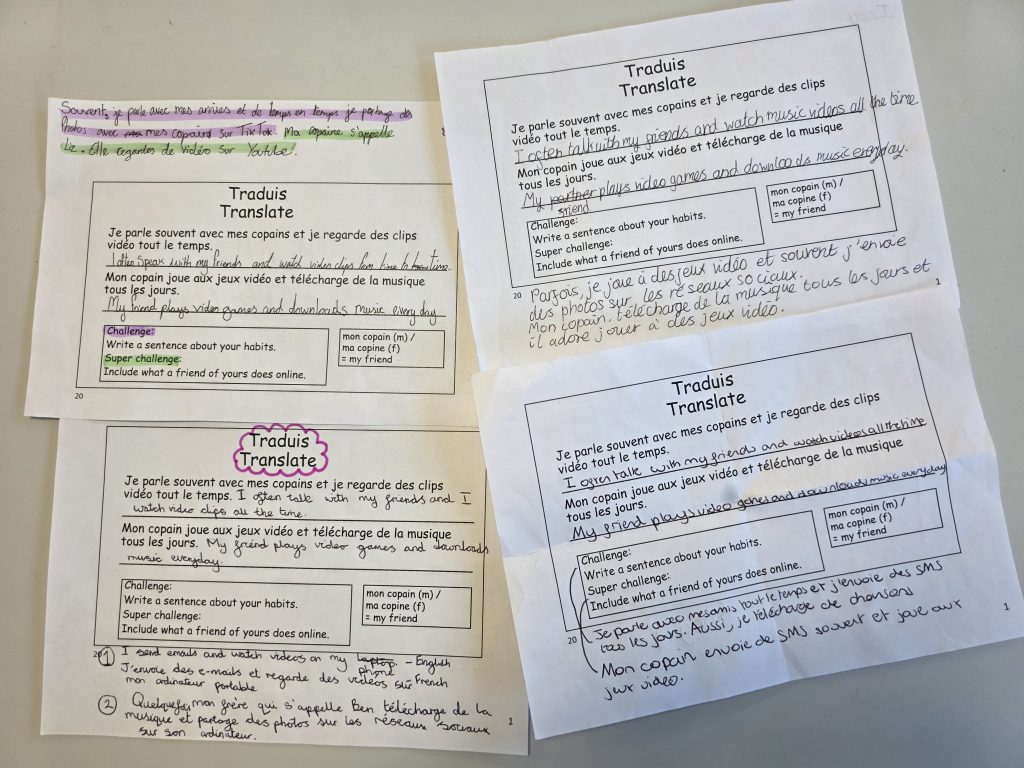 Souvent, je parle avec mes amies et de temps en temps je partage des
Photos avec mes copains sur TikTok. Ma copaine s'appelle
Liz. Elle regardes de vidéo sur Youtube.
Traduis
Translate
Je parle souvent avec mes copains et je regarde des clips
vidéo tout le temps.
I often speak with my friends and watch video clips from time to time
Mon copain joue aux jeux vidéo et télécharge de la musique
tous les jours.
My friend plays video games and downloads music every day
Challenge:
Write a sentence about your habits.
Super challenge:
Include what a friend of yours does online.
mon copain (m) /
ma copine (f)
= my friend
20
Traduis
Translate
Je parle souvent avec mes copains et je regarde des clips
vidéo tout le temps. I often talk with my friends and I
watch video clips all the time.
Mon copain joue aux jeux vidéo et télécharge de la musique
tous les jours. My freind plays video games and downloads
music everyday.
Challenge:
Write a sentence about your habits.
Super challenge:
Include what a friend of yours does online.
mon copain (m) /
ma copine (f)
= my friend
1 I send emails and watch videos on my laptop. - English
phone
J'envoie des e-mails et regarde des vidéos sur - French
mon ordinateur portable
2 Quelquefois, mon frère qui s'appelle Ben télécharge de la
musique et partage des photos sur les réseaux sociaux
sur son ordinateur.
1
Traduis
Translate
Je parle souvent avec mes copains et je regarde des clips
vidéo tout le temps.
I often talk with my friends and watch music videos all the time
Mon copain joue aux jeux vidéo et télécharge de la musique
tous les jours.
My partner plays video games and downloads music everyday.
friend
Challenge:
Write a sentence about your habits.
Super challenge:
Include what a friend of yours does online.
mon copain (m) /
ma copine (f)
= my friend
20
1
Parfois, je joue à des jeux vidéo et souvent j'envoie
des photos sur les réseaux sociaux.
Mon copain, télécharge de la musique tous les jours et
il adore jouer à des jeux vidéo.
Traduis
Translate
Je parle souvent avec mes copains et je regarde des clips
vidéo tout le temps.
I often talk with my friends and watch videos all the time
Mon copain joue aux jeux vidéo et télécharge de la musique
tous les jours.
My friend plays video games and downloads music everyday
Challenge:
Write a sentence about your habits.
Super challenge:
Include what a friend of yours does online.
mon copain (m) /
ma copine (f)
= my friend
20
1
Je parle avec mes amis tout le temps et j'envoie des SMS
tous les jours. Aussi, je télécharge de chansons
Mon copain envoie de SMS souvent et joue aux
jeux video.